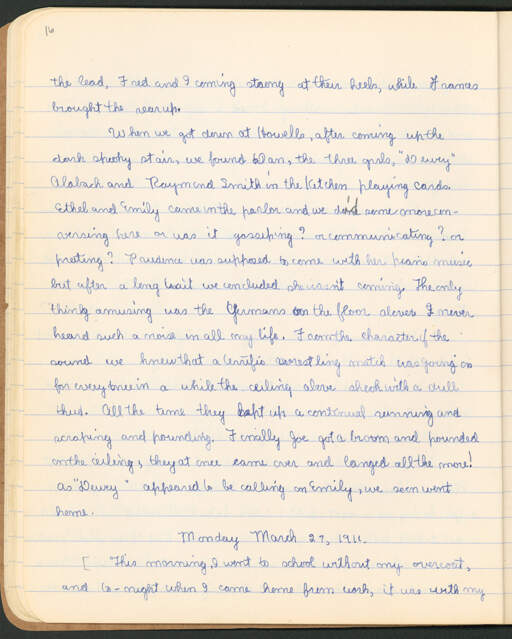 16
the lead, Fred and I coming strong at their heels, while Frances
brought the rear up.
When we got down at Howells, after coming up the
dark spooky stair, we found Dan, the three girls, "Dewey"
and Raymond Smith in the kitchen playing cards.
Ethel and Emily came in the parlor and we did some more con-
versing here or was it gossiping? or communicating? or
prating? Prudence was supposed to come with her piano music
but after a long wait we concluded she wasn't coming. The only
thing amusing was the Germans on the floor above. I never
heard such a noise in all my life. From the character of the
sound we knew that a terrific wrestling match was going on
for every once in a while the ceiling above shook with a dull
thud. All the time they kept up a continual running and
scraping and pounding. Finally Joe got a broom and pounded
on the ceiling; they at once came over and banged all the more!
As "Dewey" appeared to be calling on Emily, we soon went
home.
Monday March 27, 1911.
[ This morning, I went to school without my overcoat,
and to-night when I came home from work, it was with my